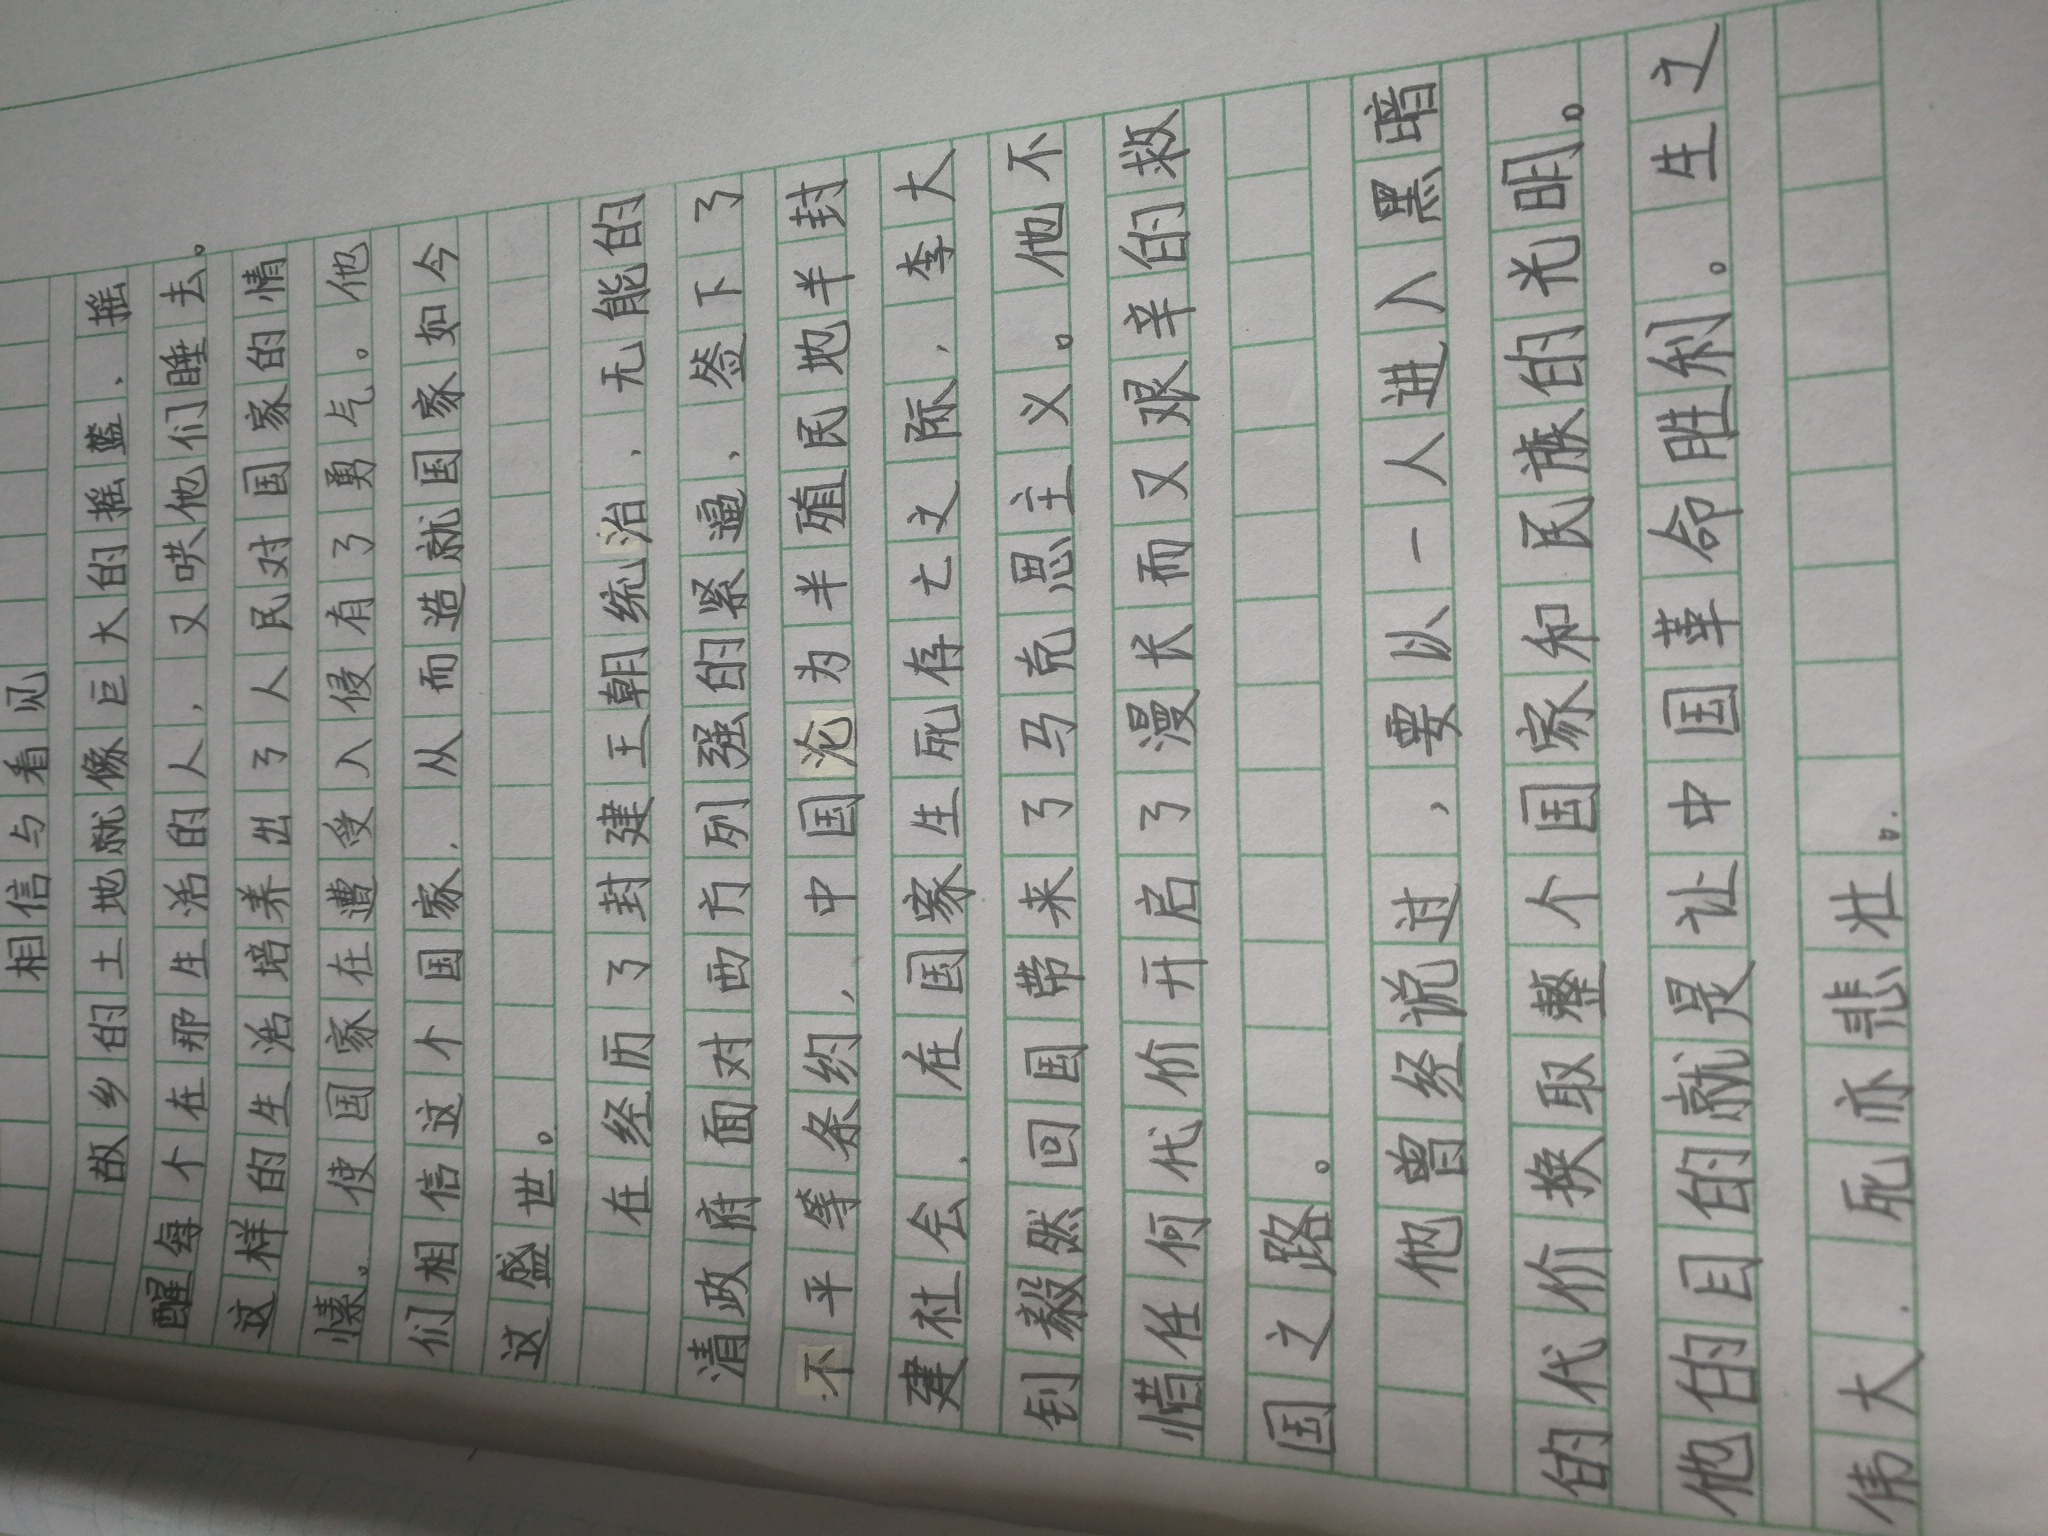 相信与看见
故乡的土地就像巨大的摇篮、摇
醒每个在那生活的人，又哄他们睡去。
这样的生活培养出了人民对国家的情
愫。使国家在遭受入侵有了勇气。他
们相信这个国家，从而造就国家如今
这盛世。
在经历了封建王朝统治，无能的
清政府面对西方列强的紧逼、签下了
不平等条约，中国沦为半殖民地半封
建社会，在国家生死存亡之际，李大
钊毅然回国带来了马克思主义。他不
惜任何代价开启了漫长而又艰辛的救
国之路。
他曾经说过，要以一人进入黑暗
的代价换取整个国家和民族的光明。
他的目的就是让中国革命胜利。生之
伟大，死亦悲壮。